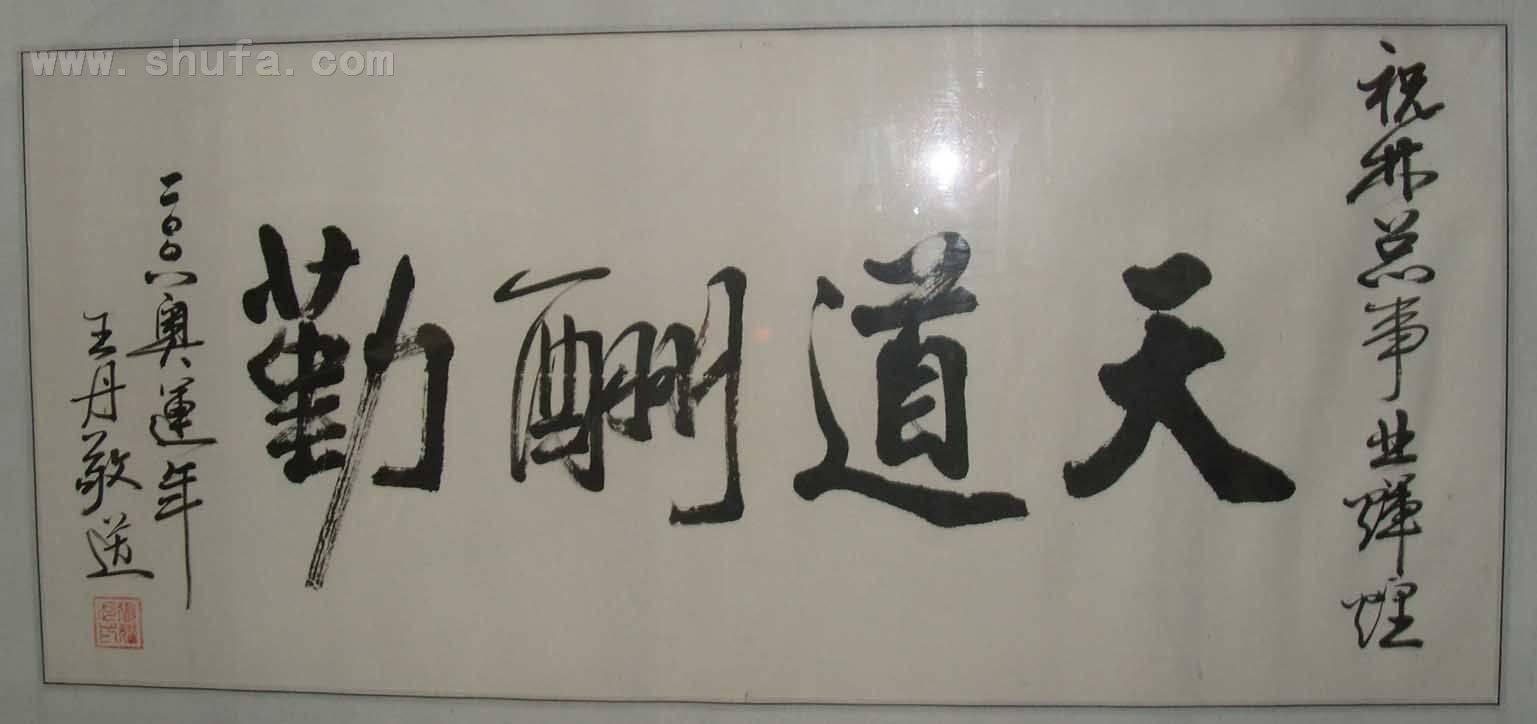 www.shufa.com
祝林总事业辉煌
天道酬勤
二〇〇八奥运年
王丹敬送